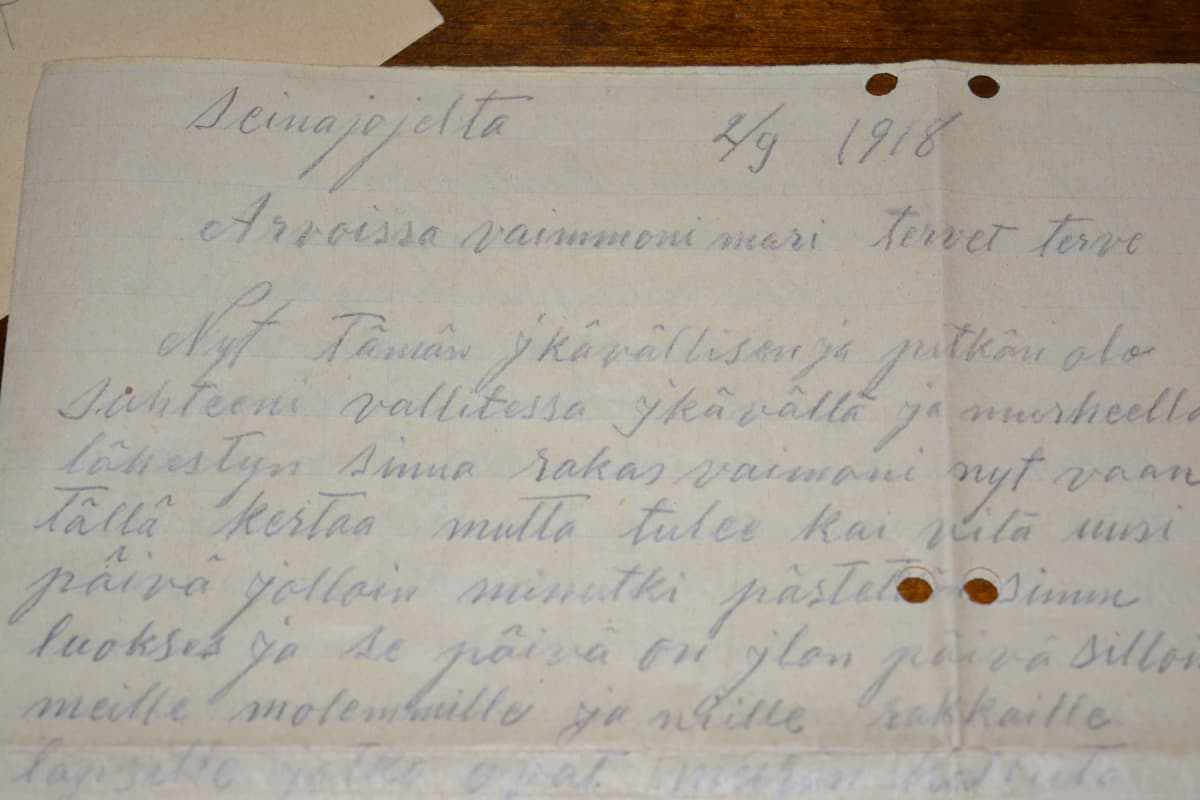 Seinajojelta 2/9 1918
Arvoissa vaimmoni mari tervet terve
Nyt Tämän ykävällisen ja pitkän olo
suhteeni vallitessa ykävällä ja murheella
lähestyn sinua rakas vaimoni nyt vaan
tällä kertaa mutta tulee kai vilä uusi
päivä jolloin minutki pästetän sinun
luokses ja se päivä on ylon päivä silloin
meille molemmille ja niille rakkaille
lapsille jotka ovat